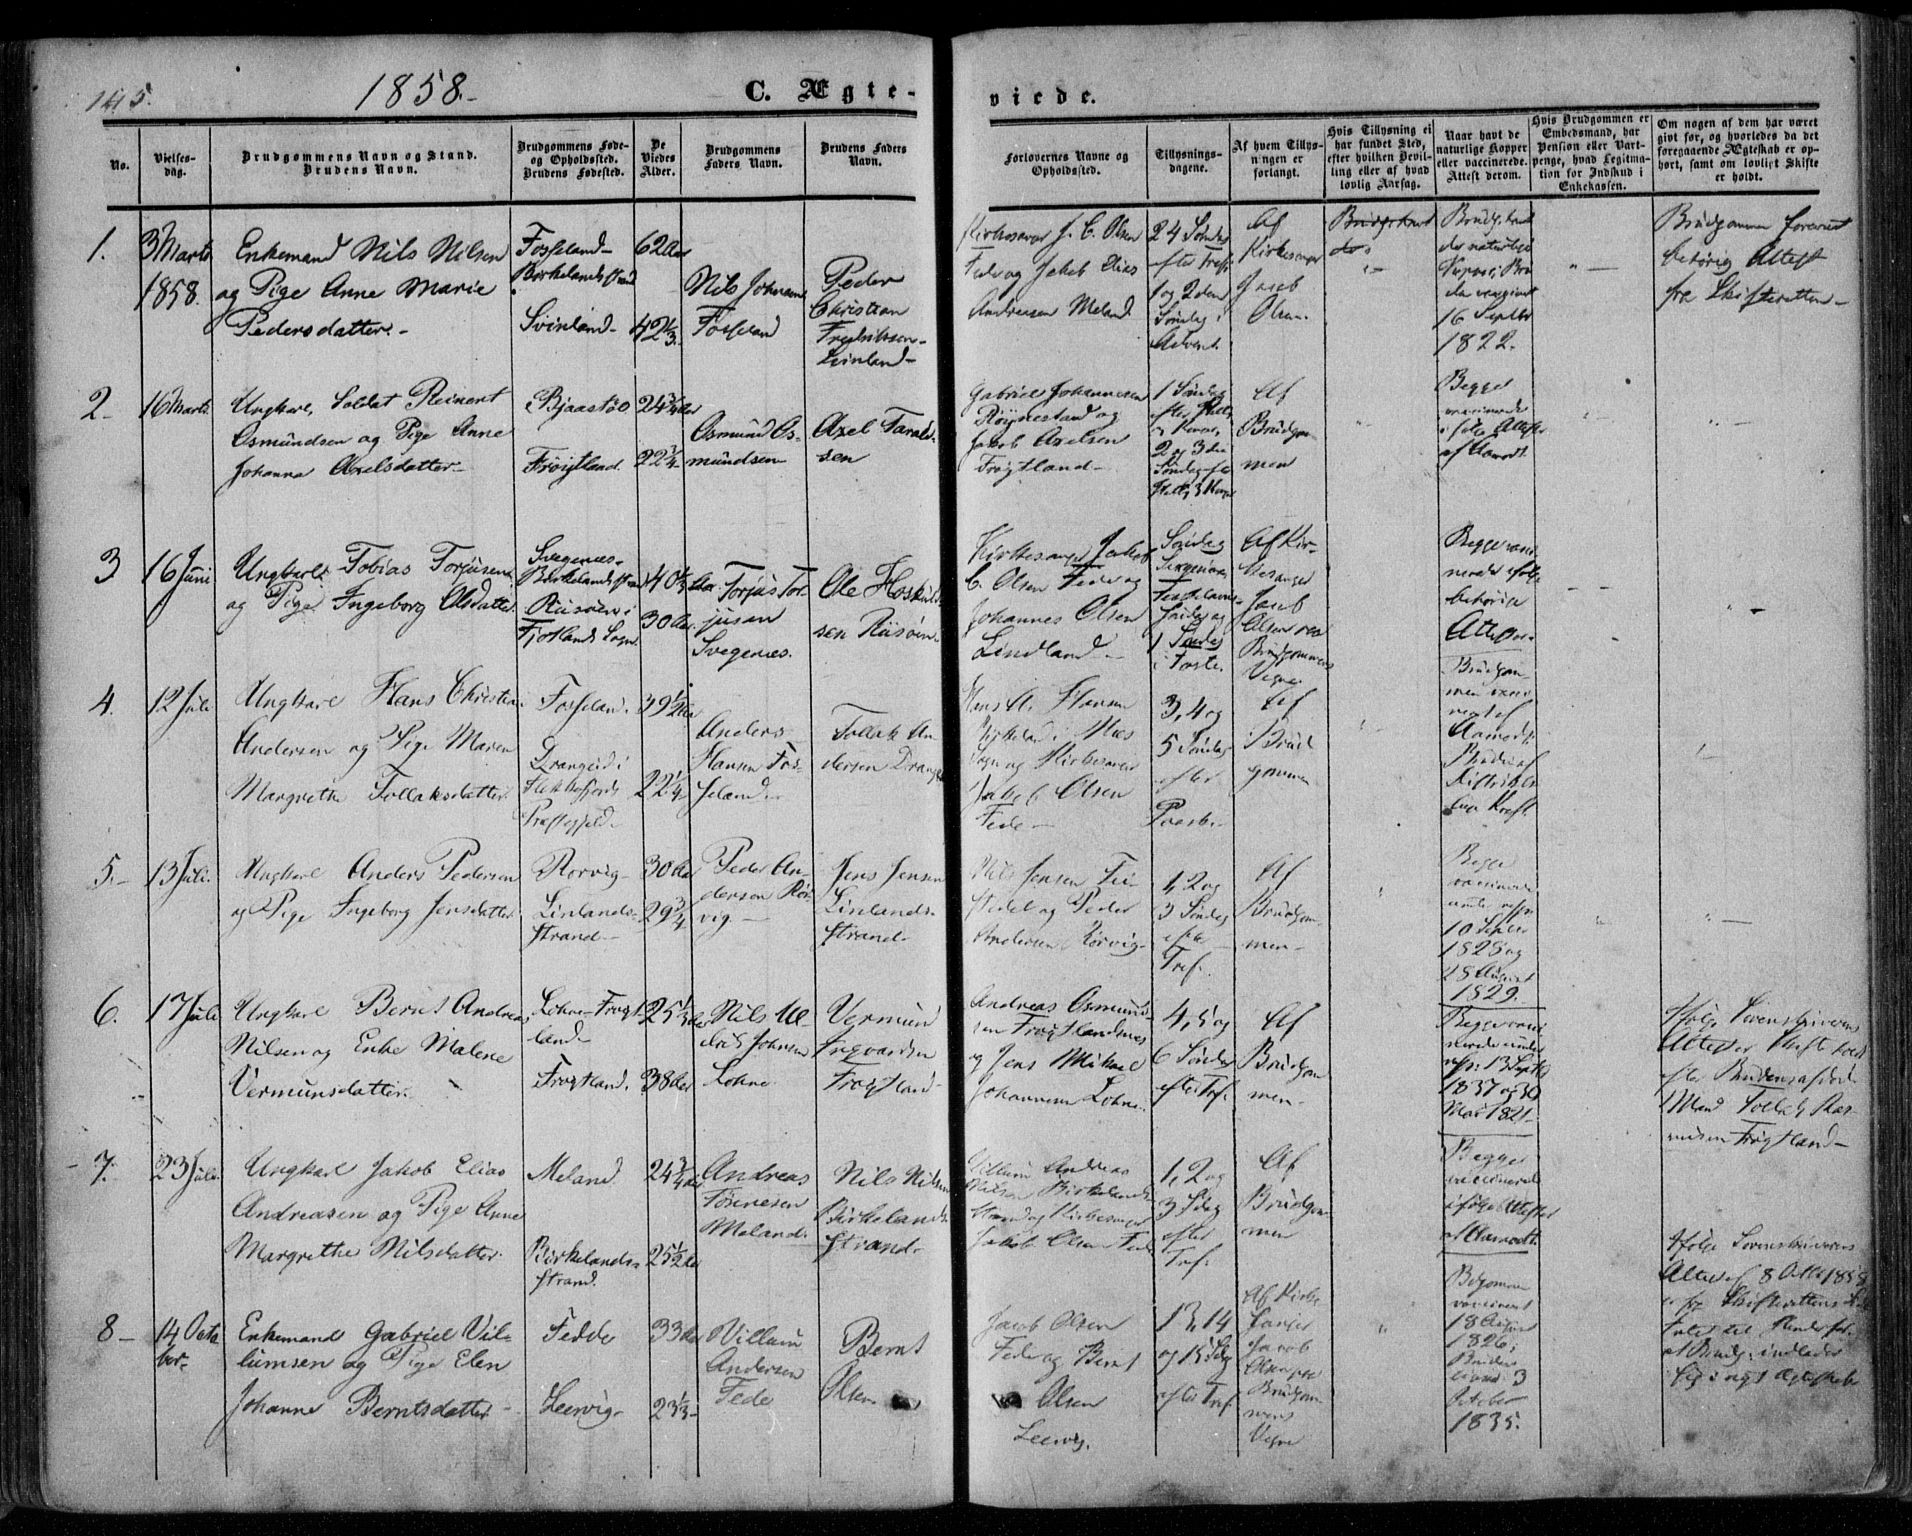 145.
1858.-
C. Ægte-
viede.
No.
Vielses-
dag.
Brudgommens Navn og Stand.
Brudens Navn.
Brudgommens Føde-
og Opholdssted.
Brudens Fødested.
De
Viedes
Alder.
Brudgommens
Faders Navn.
Brudens Faders
Navn.
Forlovernes Navne og
Opholdssted.
Tillysnings-
dagene.
Af hvem Tillys-
ningen er
forlangt.
Hvis Tillysning ei
har fundet Sted,
efter hvilken Bevil-
ling eller af hvad
lovlig Aarsag.
Naar havt de
naturlige Kopper
eller vaccinerede.
Attest derom.
Hvis Brudgommen er
Embedsmand, har
Pension eller Vart-
penge, hvad Legitima-
tion for Indskud i
Enkekassen.
Om nogen af dem har været
givt før, og hvorledes da det
foregaaende Ægteskab er op-
hørt, samt om lovligt Skifte
er holdt.
1.
3 Marts
1858.
Enkemand Nils Nilsen
og Pige Anne Marie
Pedersdatter.-
Fosseland-
Birkelandsstrand
Svinland-
62 Aar
42 1/3.
Nils Johnsen
Fosseland
Peder
Christian
Fredriksen-
Kirkesanger J. C. Olsen
Fede og Jakob Elias
Andreasen Meland
24 Søndag
efter Tref.
1 og 2den
Søndag i
Advent.
Af
Kirkesanger
Jacob
Olsen.
Brudg.
16 Septbr
1822.
Brudgommen foreviist
behørig Attest
fra Skifteretten-
2-
16 Marts
Ungkarl, Soldat Reinert
Osmundsen og Pige Anne
Johanne Axelsdatter-
Bjaastøe
Frøigtland.
24 3/4 Aar
22 3/4-
Osmund Os-
mundsen
Axel Tarald-
sen
Gabriel Johannesen
Røynestand og
Jakob Axelsen
Frøgtland-
1 Søndag
efter
2 og 3die
Søndag efter
Af
Brudgom-
men
Begge
vaccinerede
ifølge Attester
af Aamodt.
3
16 Juni
Ungkarl Tobias Torjusen
og Pige Ingeborg Olsdatter
Svegenæs-
Birkelandsstrand
Risøen i
Fjotlands Sogn.
40 1/3 Aar
30 Aar.
Torjus Tor-
jusen
Svegenæs.
Ole Hoskulds-
sen Risøen.
Kirkesanger Jakob
C. Olsen Fede og
Johannes Olsen
Lindland-
Søndag
1 Søndag
i Faste.
Af Kir-
kesanger
Jacob
Olsen paa
Brudgommens
Vegne
Begge vacci-
nerede ifølge
behørige
Attester.
4.
12 Juli
Ungkarl Hans Christian
Andersen og Pige Maren
Margrethe Tollaksdatter.
Fosseland.
Drangeid i
Flekkefjords
Præstegjeld-
39 1/2 Aar
22 1/4-
Anders
Hansen Fos-
seland.
Tollak An-
dersen Drangeid
Hans A. Hansen
Birkeland i Næs
Sogn og Kirkesanger
Jakob Olsen
Fede-
3, 4 og
5 Søndag
efter
Paaske.
Af
Brud
gommen
Brudgom-
men vacci-
neret af
Aamodt.
5.-
13 Juli.
Ungkarl Anders Pedersen
og Pige Ingeborg Jensdatter.
Rørvig-
Linlands-
strand-
30 Aar
29 3/4
Peder An-
dersen Rør-
vig.-
Jens Jensen
Linlands-
strand.
Nils Jensen Fei-
stedel og Peder
Andersen Rørvig.
1, 2 og
3 Søndag
efter
Tref.
Af
Brudgom-
men-
Begge
vaccinerede
under resp.
10 Septbr
1828 og
28 August
1829.-
6.
17 Juli
Ungkarl Bernt Andreas
Nilsen og Enke Malene
Vermunsdatter.
Lohne-Frøgt
land-
Frøgtland.
25 1/3 Aar
38 Aar
Nils Ul-
rik Johnsen
Lohne
Vermun
Ingvardsen
Frøgtland-
Andreas Osmund-
sen Frøgtlandsnes
og Jens Mikael
Johannesen Lohne.
4, 5 og
6 Søndag
efter Tref.
Af
Brudgom
men-
Begge vacci
nerede under
resp: 13 Septbr
1837 og 30
Mai 1821.
Ifølge Sorenskriverens
Attest er Skifte holdt
efter Brudens afdøde
Mand Tollak Ras-
musen Frøgtland-
7.
23 Juli.
Ungkarl Jakob Elias
Andreasen og Pige Anne
Margrethe Nilsdatter.
Meland
Birkelands-
strand.
24 3/4 Aar
25 1/2 Aar
Andreas
Tønnesen
Meland.
Nils Nilsen
Birkelands-
strand.
Villum Andreas
Nilsen Birkelands-
strand og Kirkesanger
Jakob Olsen Fede
1, 2 og
3 Sdag
efter
Tref.
Af
Brudgom-
men
Begge
vaccinerede
ifølge Attester
af Aamodt.
8-
14 Octo
ber-
Enkemand Gabriel Vil-
lumsen og Pige Elen
Johanne Berntsdatter-
Fedde
Leervig-
33 Aar
23 1/3-
Villum
Andersen
Fede
Bernt
Olsen
Jacob Olsen
Fede og Bernt
Olsen
Leervig.
13, 14
og 15 Sdg
efter Tref
Af Kirke
sanger
Jacob
Olsen paa
Brudgom-
mens
Vegne
Brudgommen
vaccineret
18 August
1826,
Bruden
3
October
1835.
Ifølge Sorenskriverens
Attest af 8 Octbr 1858
er fra Skifterettens Side
Intet til Hinder for
at Brudg: indlader
sig i nyt Ægteskab